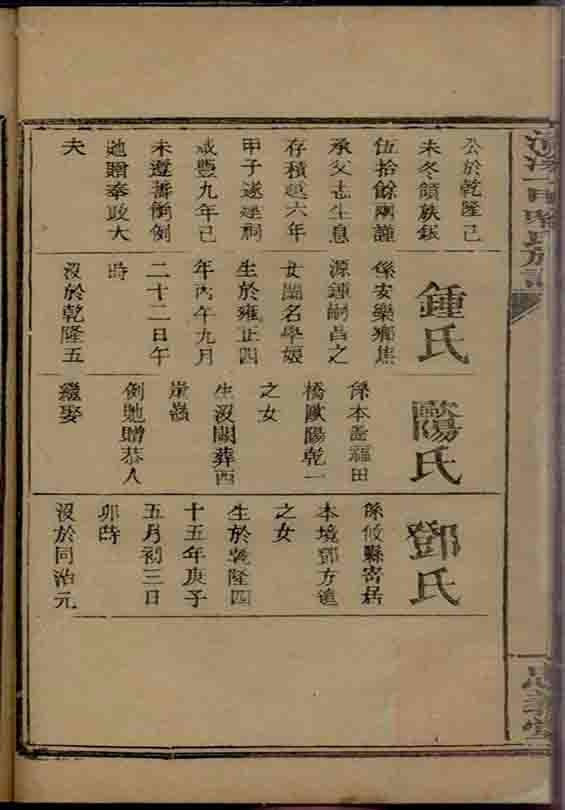 公於乾隆己
未冬領族銀
伍拾餘兩謹
承父志生息
存積越六年
甲子遂建祠
咸豐九年己
未遵籌餉例
馳贈奉政大
夫
鍾氏
係安樂鄉焦
源鍾嗣昌之
女閨名學娘
生於雍正四
年丙午九月
二十二日午
時
沒於乾隆五
陽氏
係本邑福田
橋歐陽乾一
之女
生沒闕葬西
嶺
例馳贈恭人
繼娶
鄧氏
係攸縣寄居
本境鄧方遠
之女
生於乾隆四
十五年庚子
五月初三日
卯時
沒於同治元
氏族譜
忠義堂